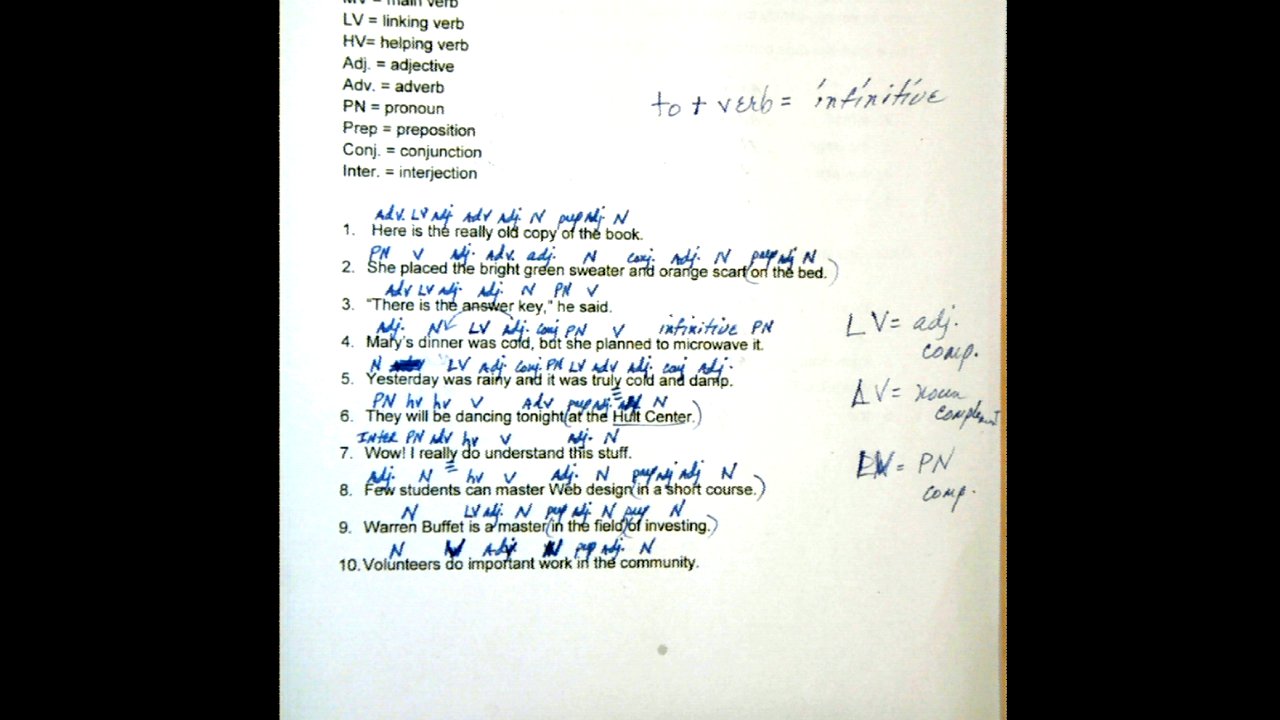 MV = main verb
LV = linking verb
HV= helping verb
Adj. = adjective
Adv. = adverb
to + verb = infinitive
PN = pronoun
Prep = preposition
Conj. = conjunction
Inter. = interjection
Adv. LV Adj. Adv Adj. N prep Adj. N
1. Here is the really old copy of the book.
PN V Adj. Adv. adj. N conj. Adj. N prep adj N
2. She placed the bright green sweater and orange scarf (on the bed.)
Adv LV Adj. Adj. N PN V
3. “There is the answer key,” he said.
Adj. N LV Adj. conj PN V infinitive PN
4. Mary's dinner was cold, but she planned to microwave it.
LV = adj.
comp.
N LV Adj. conj. PN LV Adv Adj. conj Adj.
5. Yesterday was rainy and it was truly cold and damp.
LV = noun
complement
PN hv hv V Adv prep adj. N
6. They will be dancing tonight (at the Hult Center.)
Inter PN adv hv V adj. N
7. Wow! I really do understand this stuff.
LV = PN
comp.
Adj. N hv V Adj. N prep adj adj N
8. Few students can master Web design (in a short course.)
N LV adj. N prep adj. N prep N
9. Warren Buffet is a master (in the field) (of investing.)
N Adj. N prep adj. N
10. Volunteers do important work in the community.